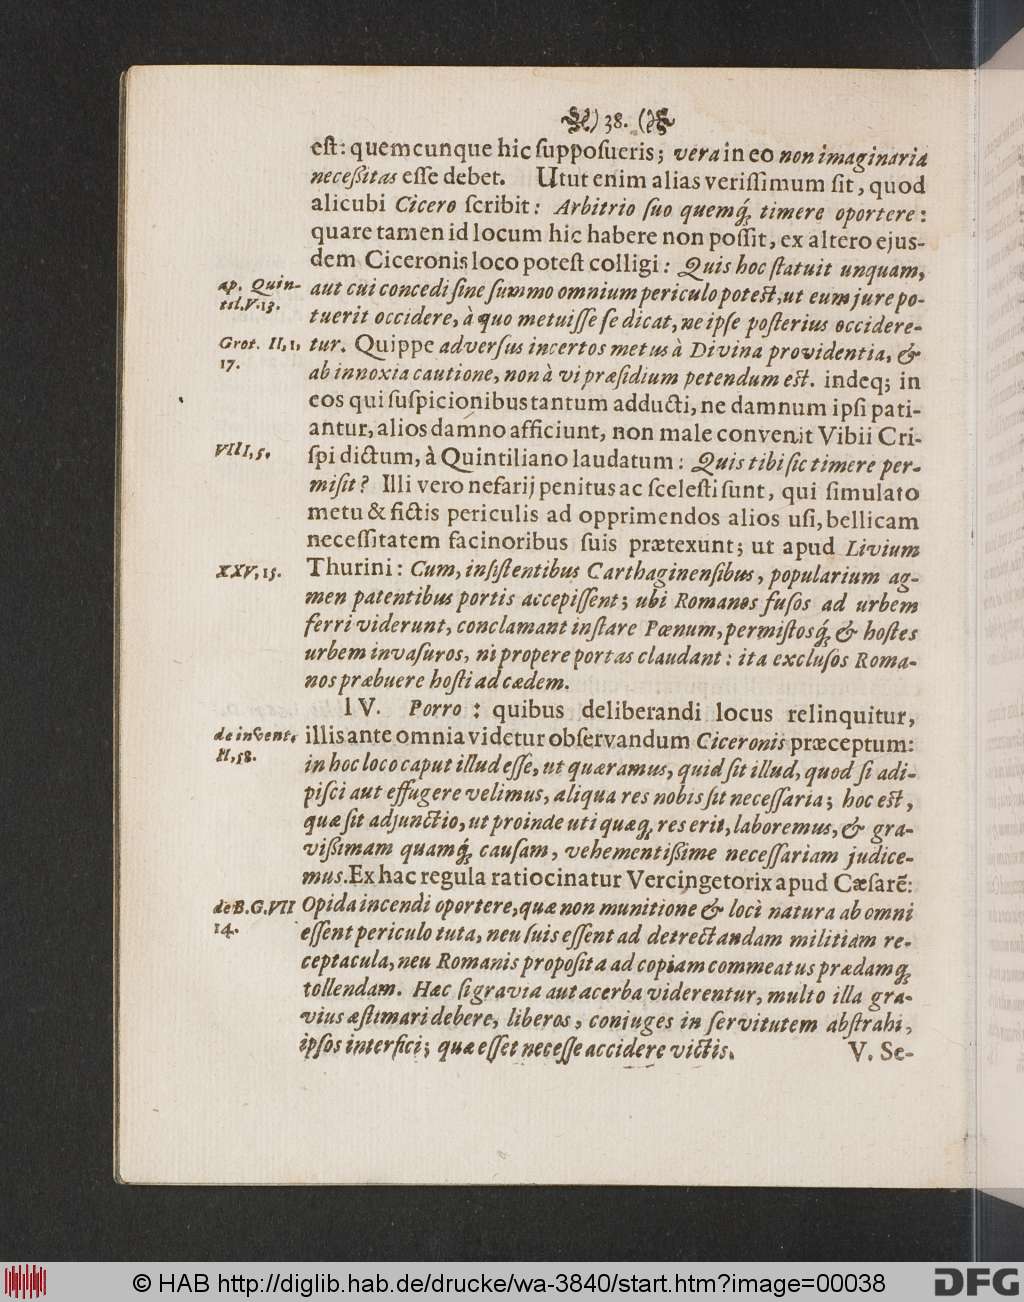 ) 38. (
eſt: quemcunque hic ſuppoſueris; vera in eo non imaginaria
neceßitas eſſe debet. Utut enim alias veriſſimum ſit, quod
alicubi Cicero ſcribit: Arbitrio ſuo quemq́; timere oportere:
quare tamen id locum hic habere non poſſit, ex altero ejus-
dem Ciceronis loco poteſt colligi: Quis hoc ſtatuit unquam,
ap. Quin- aut cui concedi ſine ſummo omnium periculo poteſt, ut eum jure po-
til. V. 13. tuerit occidere, à quo metuiſſe ſe dicat, ne ipſe poſterius occidere-
Grot. II, 1, tur. Quippe adverſus incertos metus à Divina providentia, &
17. ab innoxia cautione, non à vi præſidium petendum eſt. indeq; in
eos qui ſuſpicionibus tantum adducti, ne damnum ipſi pati-
antur, alios damno afficiunt, non male convenit Vibii Cri-
VIII, 5. ſpi dictum, à Quintiliano laudatum: Quis tibi ſic timere per-
miſit? Illi vero nefarij penitus ac ſceleſti ſunt, qui ſimulato
metu & fictis periculis ad opprimendos alios uſi, bellicam
neceſſitatem facinoribus ſuis prætexunt; ut apud Livium
XXV, 15. Thurini: Cum, inſiſtentibus Carthaginenſibus, popularium ag-
men patentibus portis accepiſſent; ubi Romanos fuſos ad urbem
ferri viderunt, conclamant inſtare Pœnum, permiſtosq́; & hoſtes
urbem invaſuros, ni propere portas claudant: ita excluſos Roma-
nos præbuere hoſti ad cædem.
IV. Porro: quibus deliberandi locus relinquitur,
de invent. illis ante omnia videtur obſervandum Ciceronis præceptum:
II, 58. in hoc loco caput illud eſſe, ut quæramus, quid ſit illud, quod ſi adi-
piſci aut effugere velimus, aliqua res nobis ſit neceſſaria; hoc eſt,
quæ ſit adjunctio, ut proinde uti quæq; res erit, laboremus, & gra-
vißimam quamq́; cauſam, vehementißime neceſſariam judice-
mus. Ex hac regula ratiocinatur Vercingetorix apud Cæſarẽ:
de B. G. VII Opida incendi oportere, quæ non munitione & loci natura ab omni
14. eſſent periculo tuta, neu ſuis eſſent ad detrectandam militiam re-
ceptacula, neu Romanis propoſita ad copiam commeatus prædamq;
tollendam. Hæc ſi gravia aut acerba viderentur, multo illa gra-
vius æſtimari debere, liberos, conjuges in ſervitutem abſtrahi,
ipſos interfici; quæ eſſet neceſſe accidere victis. V. Se-
© HAB http://diglib.hab.de/drucke/wa-3840/start.htm?image=00038 DFG